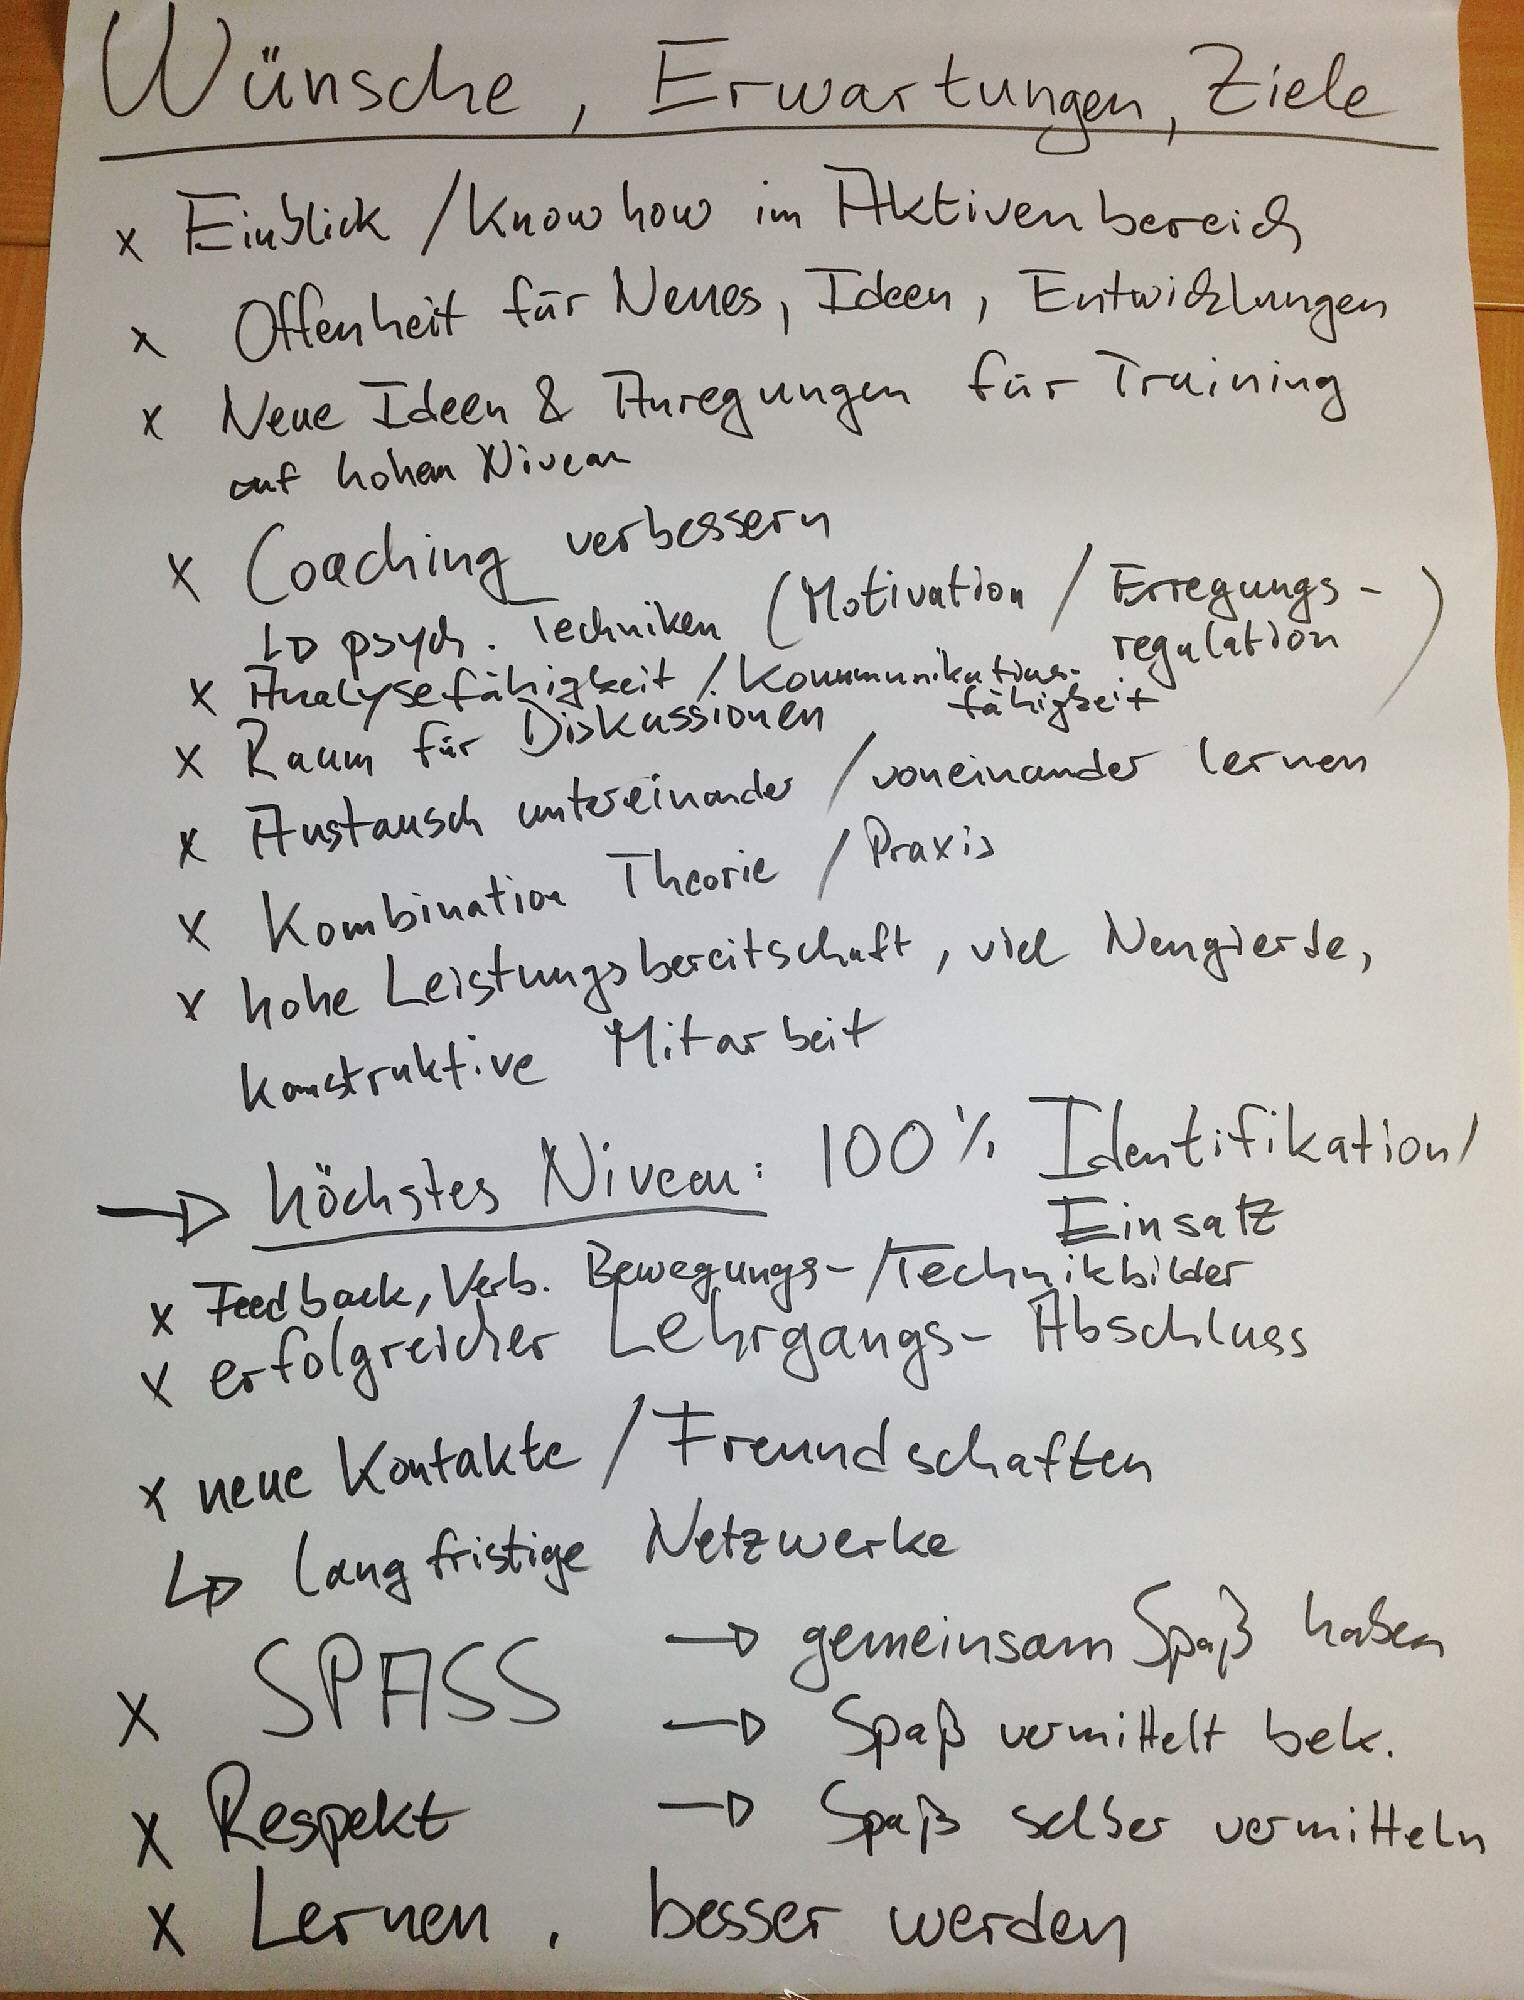 Wünsche, Erwartungen, Ziele
x Einblick / Knowhow im Aktivenbereich
x Offenheit für Neues, Ideen, Entwicklungen
x Neue Ideen & Anregungen für Training
auf hohem Niveau
x Coaching verbessern
↳ psych. Techniken (Motivation / Erregungs-
regulation)
x Analysefähigkeit / Kommunikations-
fähigkeit
x Raum für Diskussionen
x Austausch untereinander / voneinander lernen
x Kombination Theorie / Praxis
x hohe Leistungsbereitschaft, viel Neugierde,
konstruktive Mitarbeit
→ höchstes Niveau: 100% Identifikation/
Einsatz
x Feedback, Verb. Bewegungs-/Technikbilder
x erfolgreicher Lehrgangs-Abschluss
x neue Kontakte / Freundschaften
↳ langfristige Netzwerke
x SPASS → gemeinsam Spaß haben
→ Spaß vermittelt bek.
→ Spaß selber vermitteln
x Respekt
x Lernen, besser werden